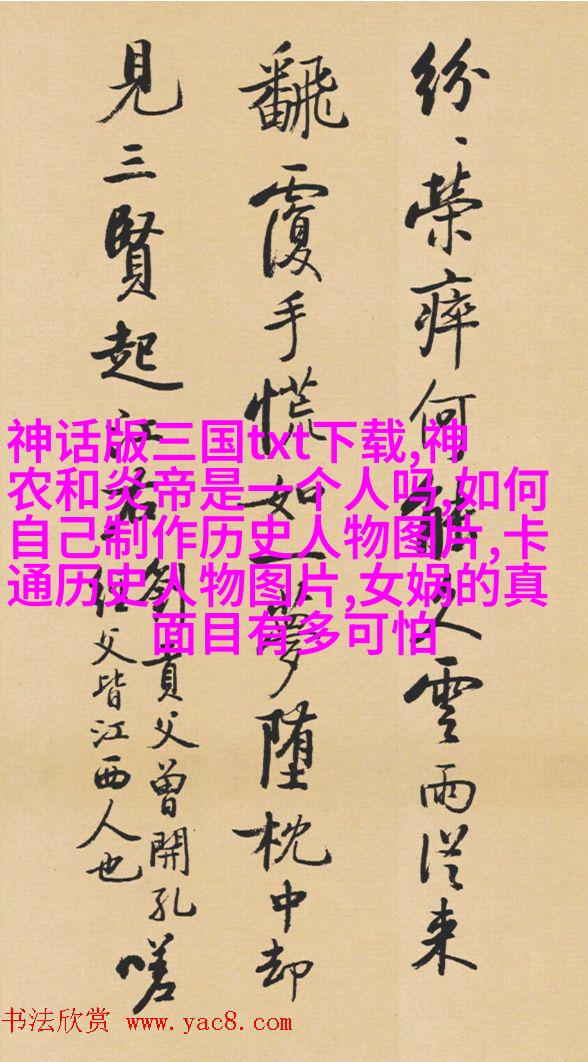 紛、榮瘁何能久雲雨從來
飜覆手慌如一夢墮枕中却
見三賢起江右
劉貢父曾開孔
經父皆江西人也
嗟
神话版三国txt下载,神
农和炎帝是一个人吗,如何
自己制作历史人物图片,卡
通历史人物图片,女娲的真
面目有多可怕
书法欣赏 www.yac8.com